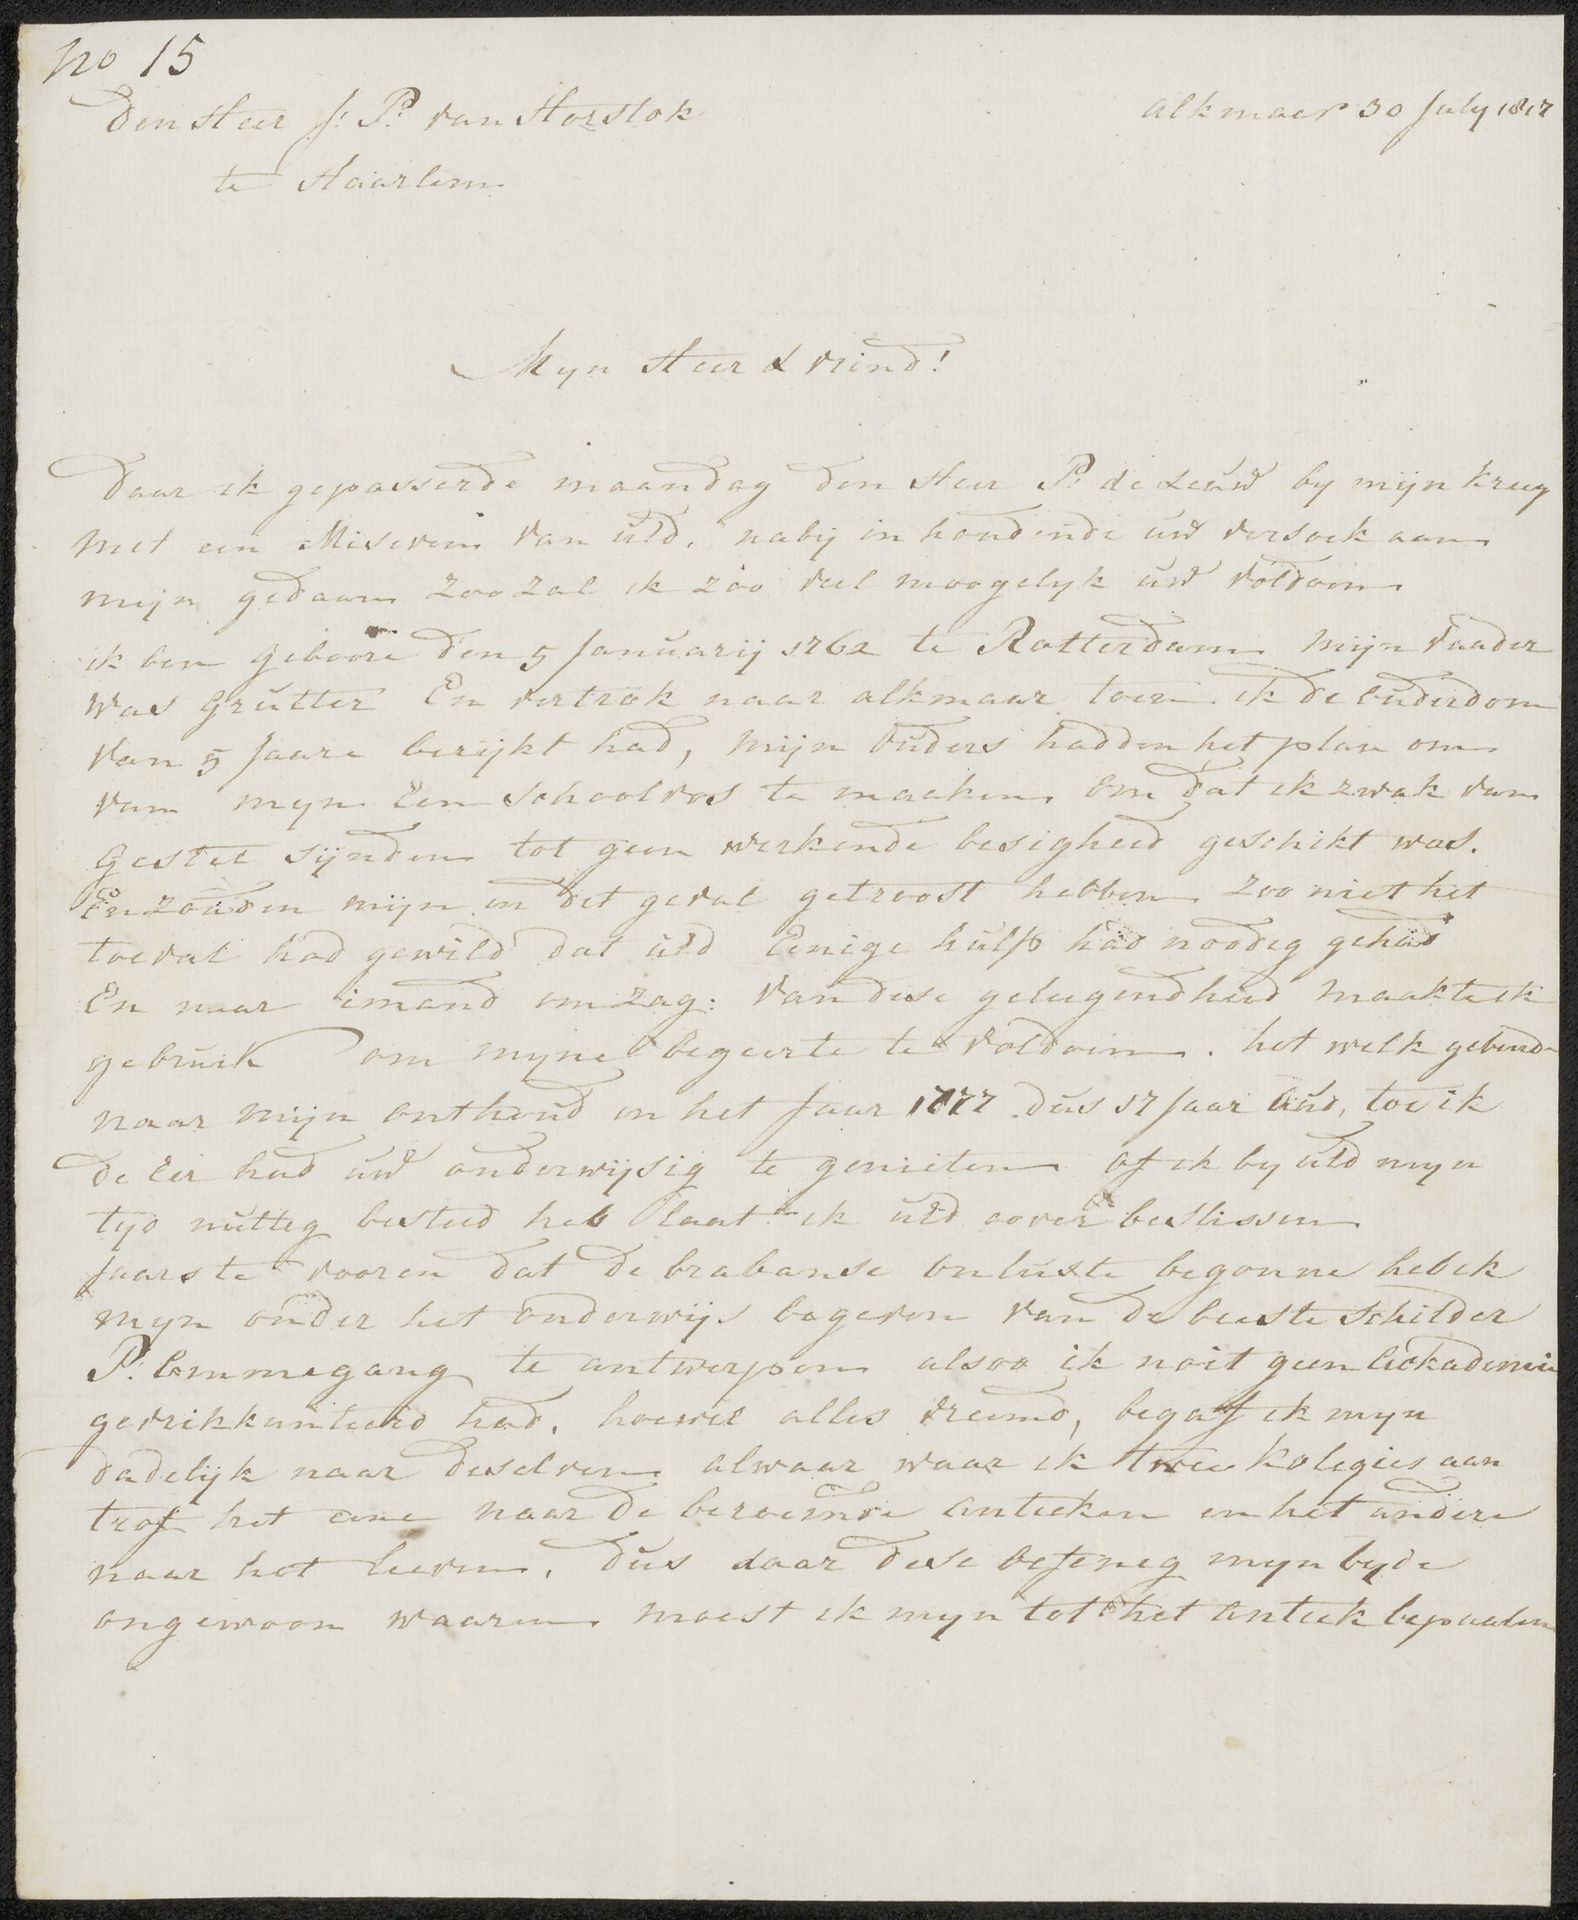 no 15
Den Heer J: P: van Horstok
alkmaar 30 July 1817
te Haarlem
Myn Heer & vrind!
Daar ik gepasserde maandag den Heer P: de Leuw by mijn kreeg
met een Miseven van UEd. nabij in houdende uw versoek aan
mijn gedaan zoo zal ik zoo veel moogelyk uw voldoen
ik ben geboore den 5 Januarij 1762 te Rotterdam mijn Vaader
was Grutter En vertrok naar alkmaar toen ik de Ouderdom
van 5 Jaare berijkt had, mijn Ouders hadden het plan om
van myn Een schoolvos te maaken om dat ik zwak van
gestel sijnden tot geen werkende besigheid geschikt was.
En zouden mijn in dit geval getroost hebben zoo niet het
toeval had gewild dat UEd Eenige hulp had noodig gehad
En naar imand om zag: van dese geleegendheid maakte ik
gebruik om myne begeerte te voldoen. het welk gebeurde
naar mijn onthoud in het Jaar 1777 dus 17 Jaar Oud, toe ik
de Eer had uw onderwijsig te genieten of ik by UEd myn
tyd nutteg besteed heb laat ik UEd oover beslissen
Jaars te vooren dat de brabanse onluste begonne heb ik
myn onder het onderwijs begeven van de beeste schilder
P: Ommegang te antwerpen alsoo ik noit geen Ackademie
gevrikkunteerd had, hoewel alles vreemd, begaf ik myn
dadelijk naar deselven alwaar waar ik twee kolegies aan
trof het eene naar de beroemde Antieken en het andere
naar het leeven, dus daar dese oefeneg myn byde
ongewoon waaren moest ik myn tot het Antiek bepaalen